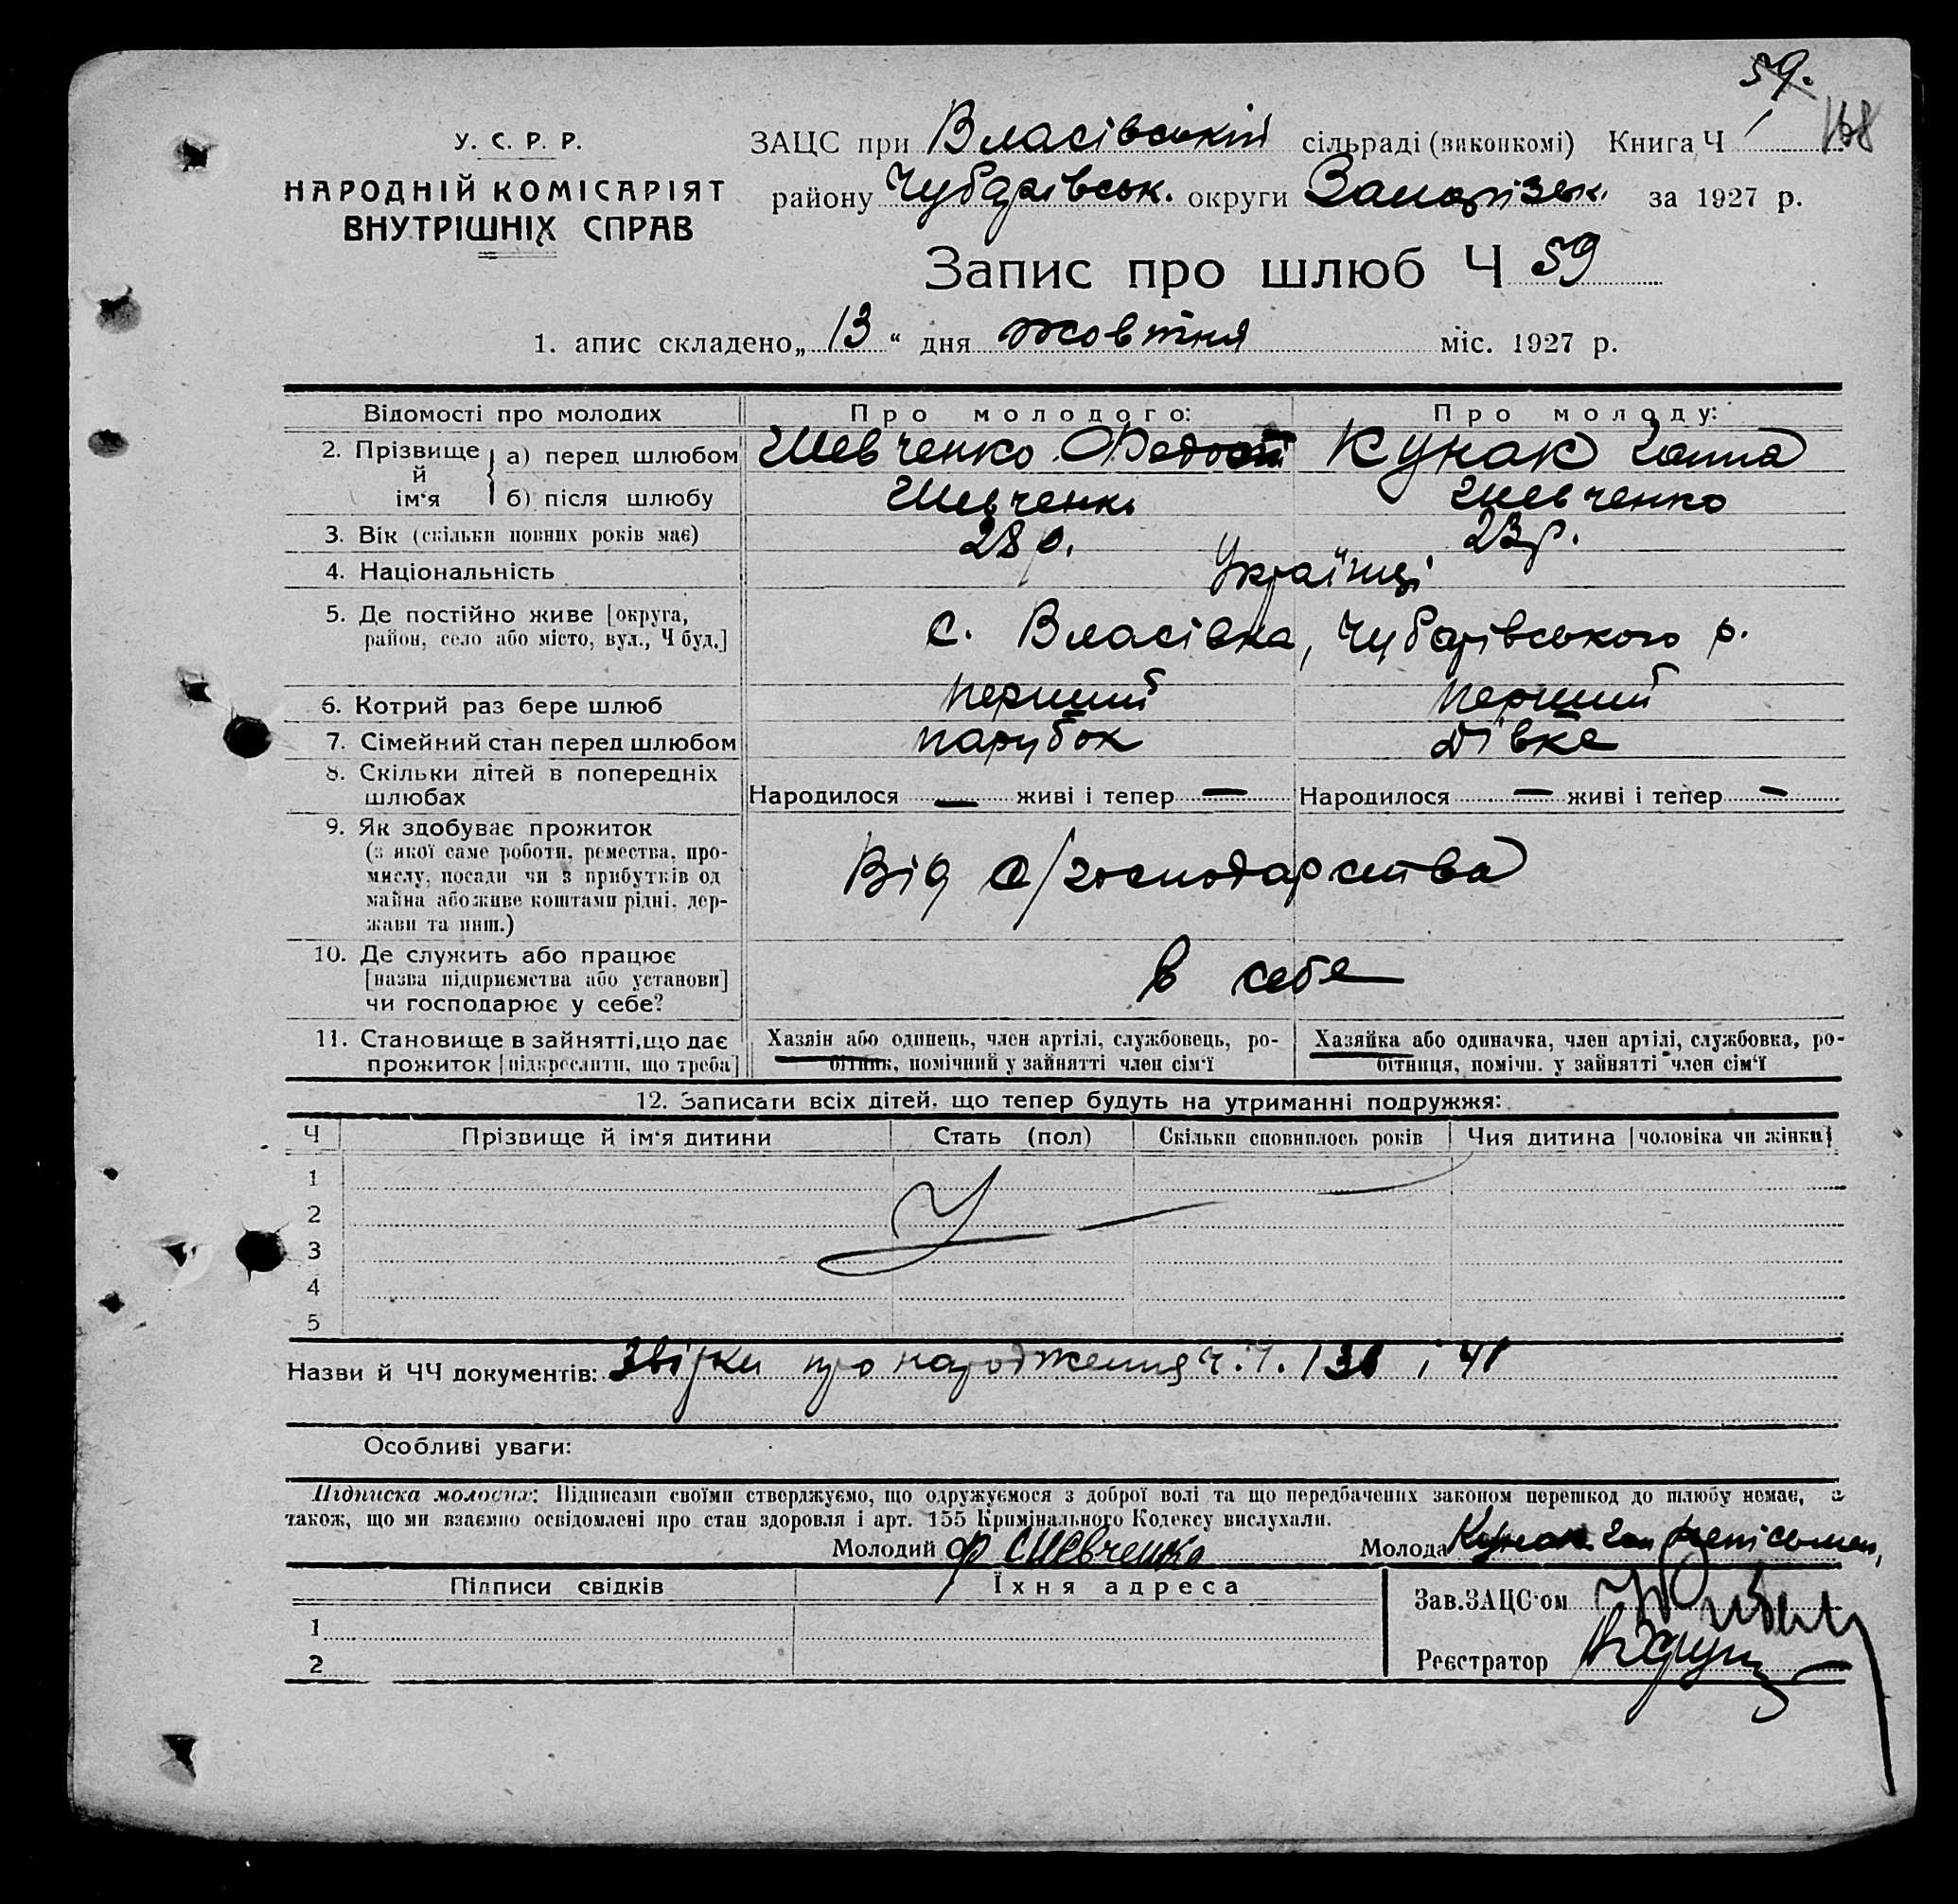 59.
168
У. С. Р. Р.
НАРОДНІЙ КОМІСАРІЯТ
ВНУТРІШНІХ СПРАВ
ЗАЦС при Власівській сільраді (виконкомі) Книга Ч
району Чубарівськ. округи Запорізьк. за 1927 р.
Запис про шлюб Ч 59
1. апис складено „13“ дня жовтня міс. 1927 р.
Відомості про молодих Про молодого: Про молоду:
2. Прізвище й ім‘я а) перед шлюбом Шевченко Федосій Кунак Ганна
б) після шлюбу Шевченко Шевченко
3. Вік (скільки повних років має) 28 р. 23 р.
4. Національність Українці
5. Де постійно живе [округа,
район, село або місто, вул., Ч буд.] с. Власівка, Чубарівського р.
6. Котрий раз бере шлюб перший перший
7. Сімейний стан перед шлюбом парубок дівка
8. Скільки дітей в попередніх
шлюбах Народилося — живі і тепер — Народилося — живі і тепер —
9. Як здобуває прожиток
(з якої саме роботи, ремества, про-
мислу, посади чи з прибутків од
майна або живе коштами рідні, дер-
жави та инш.) Від с/господарства
10. Де служить або працює
[назва підприємства або установи]
чи господарює у себе? в себе
11. Становище в зайнятті, що дає
прожиток [підкреслити, що треба]
Хазяїн або одинець, член артілі, службовець, ро-
бітник, помічний у зайнятті член сім‘ї
Хазяйка або одиначка, член артілі, службовка, ро-
бітниця, помічн. у зайнятті член сім‘ї
12. Записати всіх дітей, що тепер будуть на утриманні подружжя:
Ч Прізвище й ім‘я дитини Стать (пол) Скільки сповнилось років Чия дитина [чоловіка чи жінки]
1
2
3
4
5
Назви й ЧЧ документів: Звірки про народження ч.ч. 138 і 41
Особливі уваги:
Підписка молодих: Підписами своїми стверджуємо, що одружуємося з доброї волі та що передбачених законом перешкод до шлюбу немає, а
також, що ми взаємно освідомлені про стан здоровля і арт. 155 Кримінального Кодексу вислухали.
Молодий Ф Шевченко Молода Кунак
Підписи свідків Їхня адреса
Зав. ЗАЦС‘ом
1
Реєстратор
2